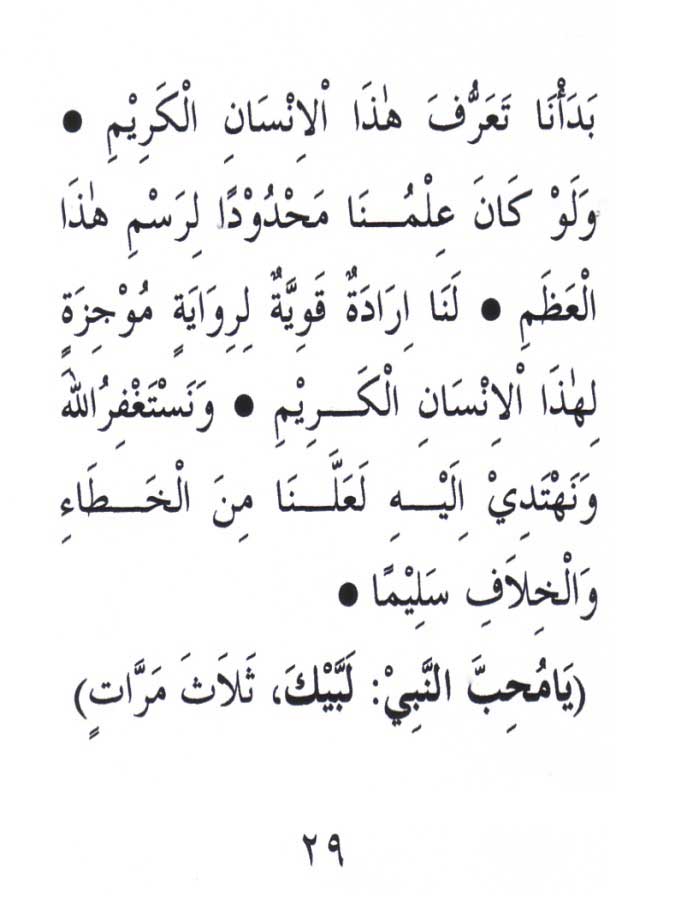 بَدَأْنَا تَعَرُّفَ هٰذَا الْاِنْسَانِ الْكَرِيْمِ ●
وَلَوْ كَانَ عِلْمُـــنَا مَحْدُوْدًا لِرَسْمِ هٰذَا
الْعَظَمِ ● لَنَا اِرَادَةٌ قَوِيَّةٌ لِرِوَايَةٍ مُوْجِزَةٍ
لِهٰذَا الْاِنْسَانِ الْكَـــرِيْمِ ● وَنَسْتَغْفِرُ اللّٰهَ
وَنَهْتَدِيْ اِلَيْـــهِ لَعَلَّـــنَا مِنَ الْخَـــطَاءِ
وَالْخِلَافِ سَلِيْمًا ●
(يَامُحِبَّ النَّبِيْ: لَبَّيْكَ، ثَلَاثَ مَرَّاتٍ)
٢٩